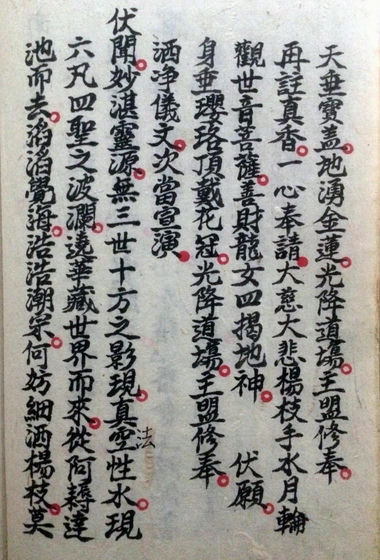 天垂寶蓋地湧金蓮光降道塲主盟修奉
再註真香一心奉請大慈大悲楊枝手水月輪
觀世音菩薩善財龍女四揭地神 伏願
身垂瓔珞頂戴花冠光降道塲主盟修奉
洒淨儀文次當宣演
伏聞妙湛靈源無三世十方之影現真空性水現
法
六凡四聖之波瀾遶華藏世界而來從阿耨達
池而去滔滔覺海浩浩潮宗何妨細洒楊枝莫